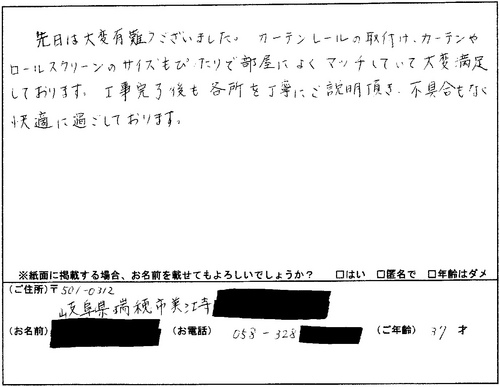 先日は大変有難うございました。カーテンレールの取付け、カーテンや
ロールスクリーンのサイズもぴったりで部屋によくマッチしていて大変満足
しております。工事完了後も各所を丁寧にご説明頂き、不具合もなく
快適に過ごしております。
※紙面に掲載する場合、お名前を載せてもよろしいでしょうか？ □はい □匿名で □年齢はダメ
(ご住所)〒501-0312
岐阜県瑞穂市美江寺
(お名前) (お電話) 058-328 (ご年齢) 37 才